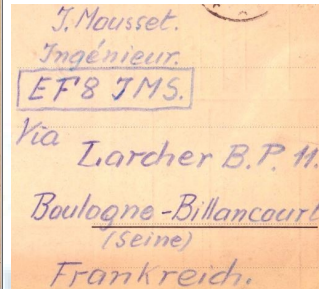 J. Mousset.
Ingénieur.
EF8 JMS.
Via
Larcher B.P. 11.
Boulogne-Billancourt
(Seine)
Frankreich.